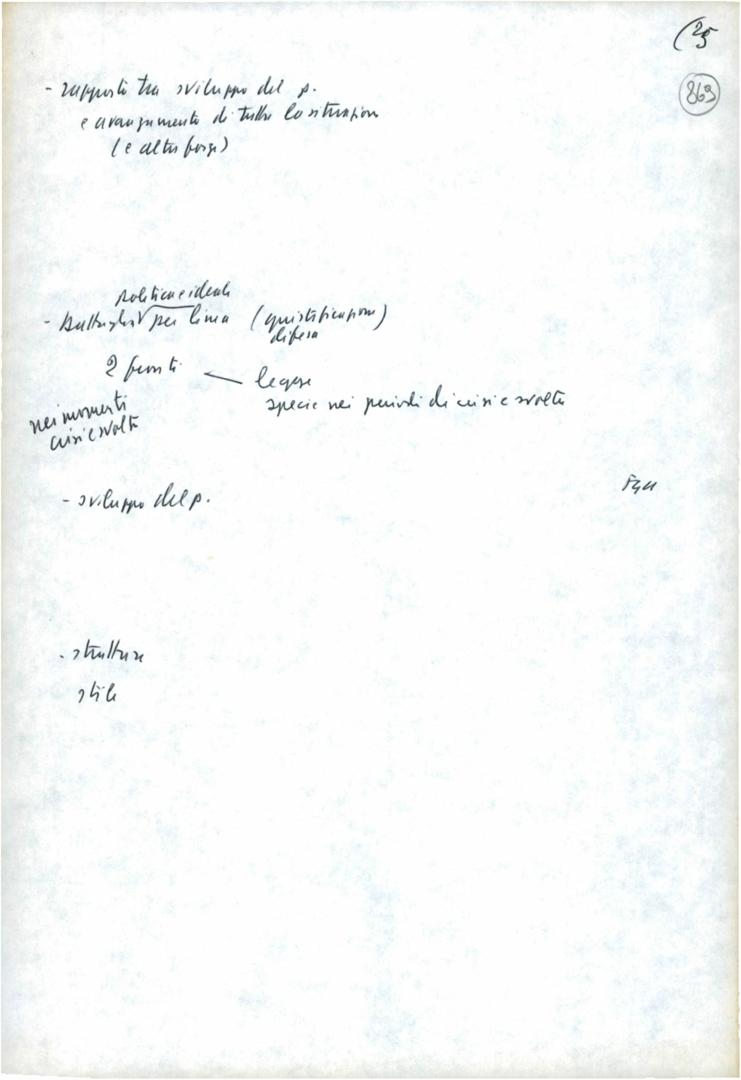 (25
863
- rapporti tra sviluppo del p.
e avanzamento di tutta la situazione
(e altre forze)
politica e ideale
- Battaglia per linea (giustificazione)
difesa
2 fronti — legge
specie nei periodi di crisi e svolta
nei momenti
crisi e svolta
- sviluppo del p.
- strutture
stile